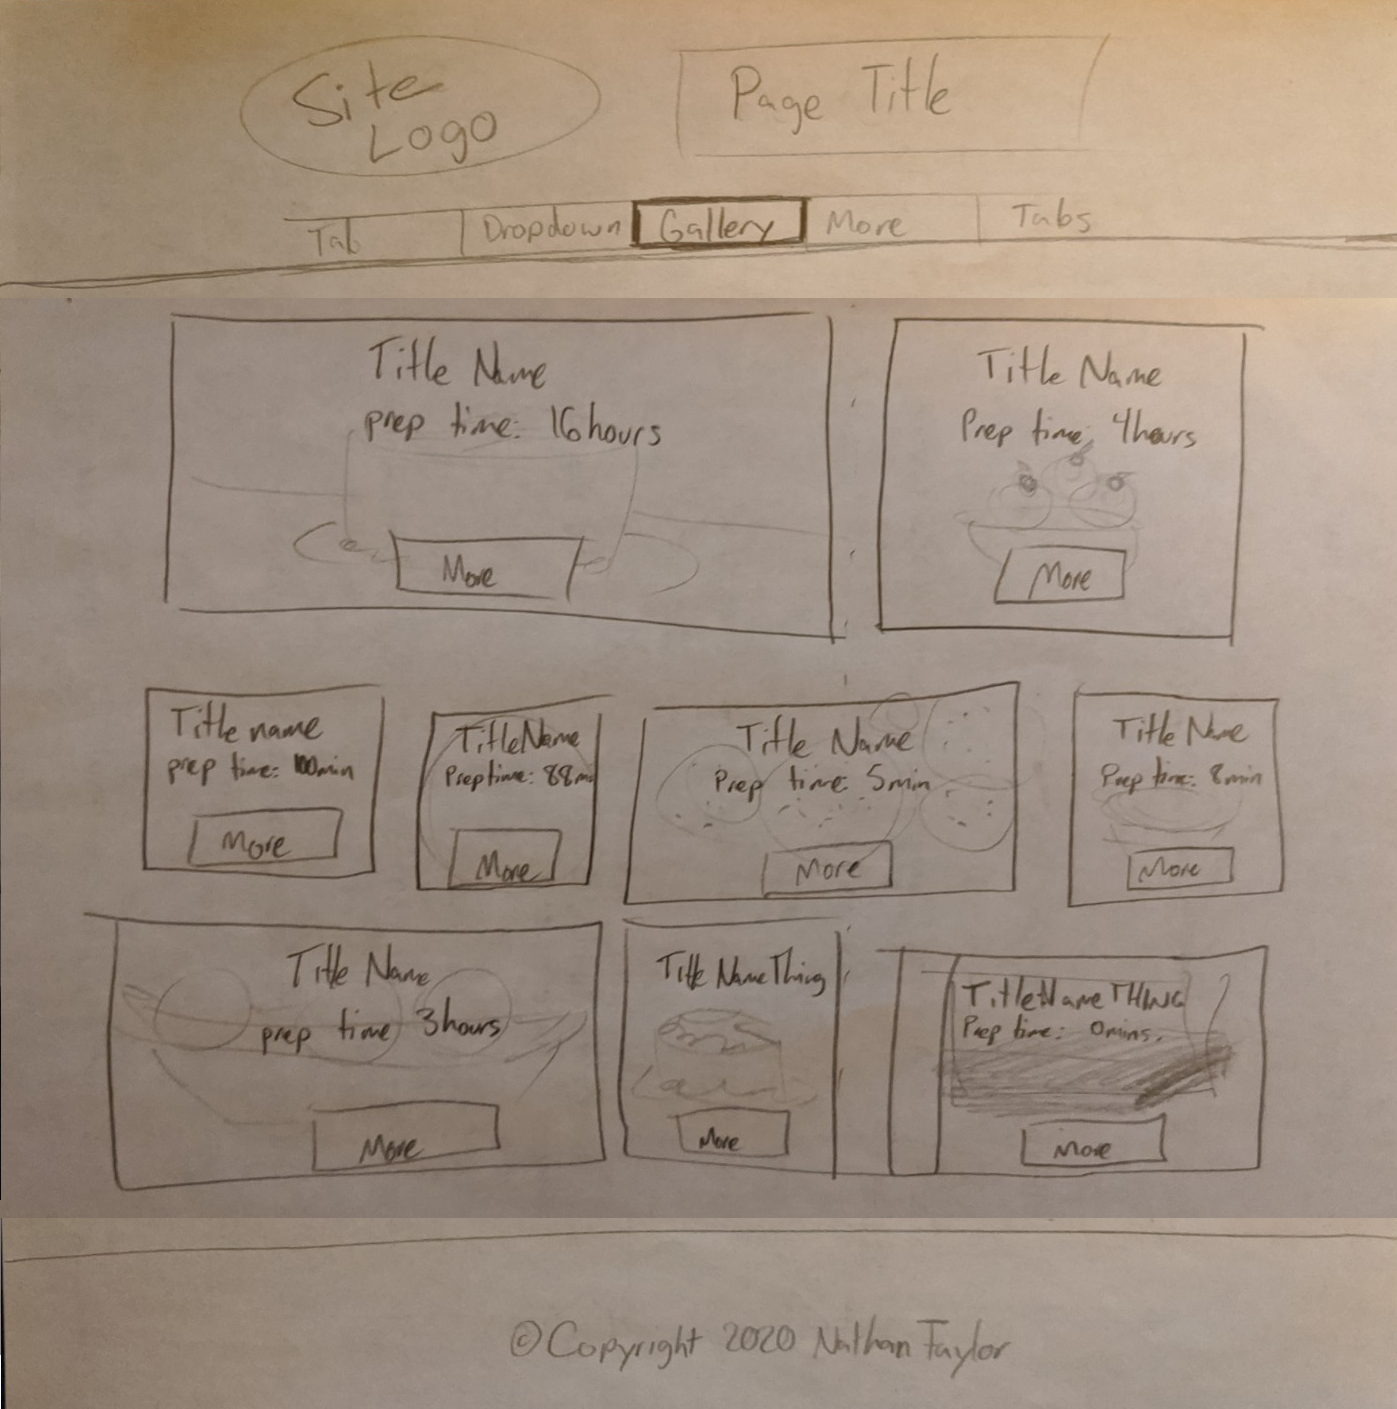 Site
Logo
Page Title
Tab
Dropdown
Gallery
More
Tabs
Title Name
prep time: 16hours
More
Title Name
Prep time: 4hours
More
Title name
prep time: 100min
More
TitleName
Preptime: 88mi
More
Title Name
Prep time: 5min
More
Title Name
Prep time: 8min
More
Title Name
prep time 3hours
More
Title NameThing
More
TitleNameTHING
Prep time: 0mins.
More
©Copyright 2020 Nathan Taylor